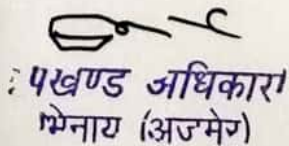 : पखण्ड अधिकारी
भिनाय (अजमेर)